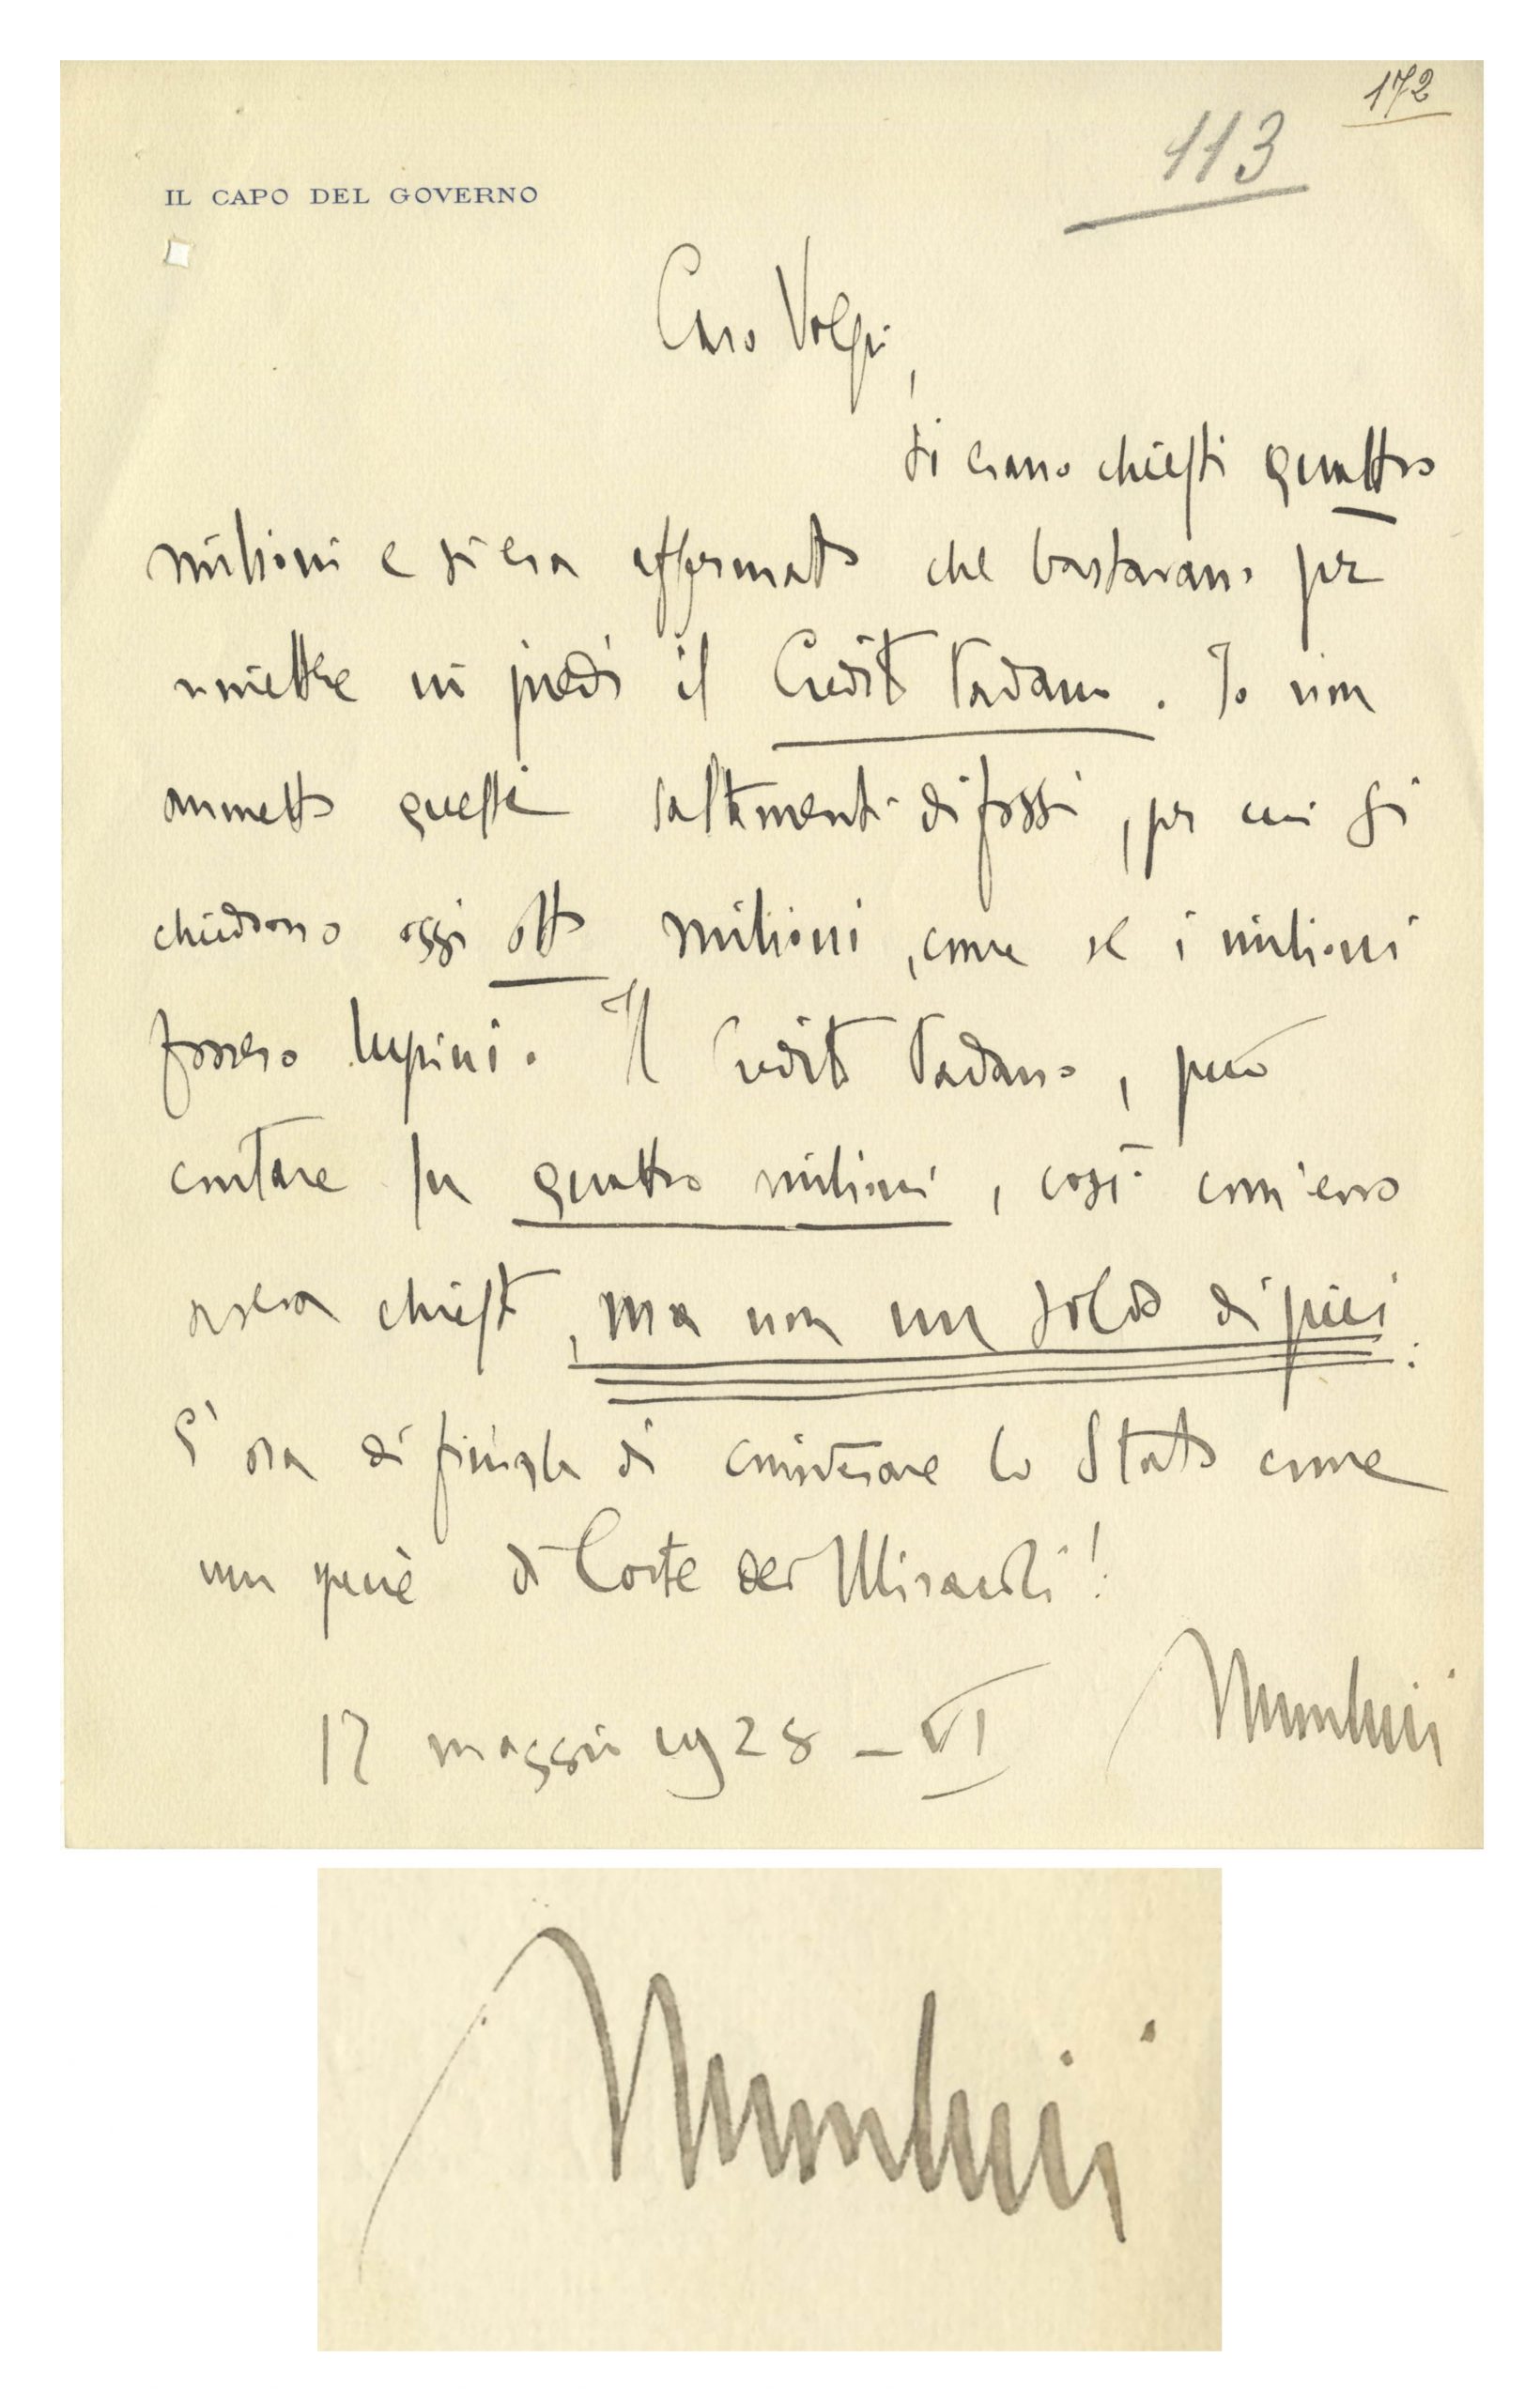 172
113
IL CAPO DEL GOVERNO
Caro Volpi,
si erano chiesti quattro
milioni e si era affermato che bastavano per
rimettere in piedi il Credito Padano. Io non
ammetto questi saltamenti di fossi, per cui si
chiedono oggi otto milioni, come se i milioni
fossero lupini. Il Credito Padano, può
contare su quattro milioni, così com'esso
aveva chiesto, ma non un soldo di più:
E' ora di finirla di considerare lo Stato come
una specie di Corte dei Miracoli!
17 maggio 1928 - VI Mussolini
Mussolini